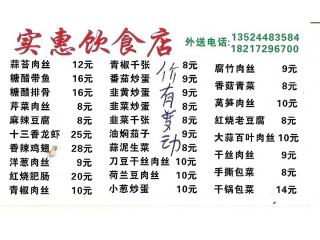 实惠饮食店
外送电话:13524483584
18217296700
蒜苔肉丝 12元
糖醋带鱼 16元
糖醋排骨 16元
芹菜肉丝 8元
麻辣豆腐 8元
十三香龙虾 25元
香辣鸡翅 28元
洋葱肉丝 9元
红烧肥肠 20元
青椒肉丝 10元
青椒千张 8元
番茄炒蛋 9元
韭黄炒蛋 9元
韭菜炒蛋 8元
韭菜千张 8元
油焖茄子 9元
蒜泥生菜 8元
刀豆干丝肉丝 10元
荷兰豆肉丝 10元
小葱炒蛋 10元
价有变动
腐竹肉丝 9元
香菇青菜 8元
莴笋肉丝 10元
红烧老豆腐 8元
大蒜百叶肉丝 10元
干丝肉丝 9元
手撕包菜 8元
干锅包菜 14元